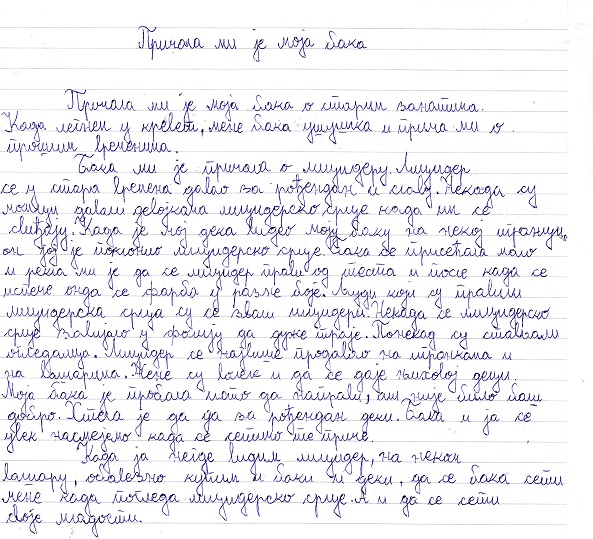 Причала ми је моја бака
Причала ми је моја бака о старим занатима.
Када легнем у кревет, мене бака ушушка и прича ми о
прошлим временима.
Бака ми је причала о лицидеру. Лицидер
се у стара времена давао за рођендан и славу. Некада су
момци давали девојкама лицидерско срце када им се
свиђају. Када је мој дека видео моју баку на неком
он јој је поклонио лицидерско срце. Бака се присећала мало
и рекла ми је да се лицидер прави од теста и после када се
испече онда се фарба у разне боје. Људи који су правили
лицидерска срца су се звали лицидери. Некада се лицидерско
срце завијало у фолију да дуже траје. Понекад су стављали
огледалца. Лицидер се највише продавао на
на вашарима. Жене су волеле и да се даје њиховој деци.
Моја бака је пробала исто да направи, али није било баш
добро. Хтела је да га да за рођендан деки. Бака и ја се
увек насмејемо када се сетимо те приче.
Када ја негде видим лицидер, на неком
вашару, обавезно купим и баки и деки, да се бака сети
мене када погледа лицидерско срце. А и да се сети
своје младости.